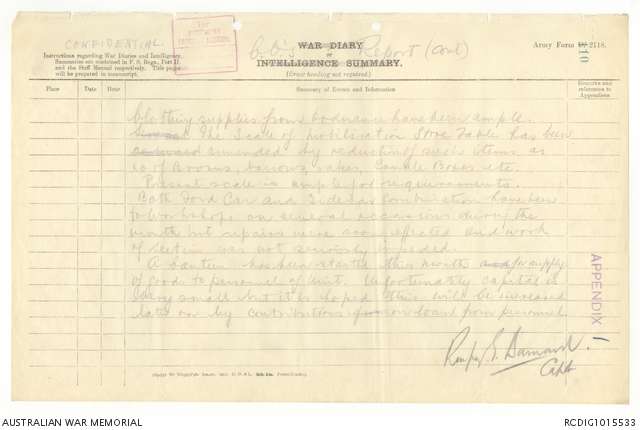 CONFIDENTIAL
WAR DIARY
or
INTELLIGENCE SUMMARY.
(Erase heading not required.)
C.O's Report (Cont)
Army Form C. 2118.
110
Instructions regarding War Diaries and Intelligence
Summaries are contained in F. S. Regs., Part II.
and the Staff Manual respectively. Title pages
will be prepared in manuscript.
Place
Date
Hour
Summary of Events and Information
Remarks and
references to
Appendices
Clothing supplies from Ordnance have been ample.
The Scale of Mobilisation Store Table has been
amended by reduction of such items as
no of Brooms, barrows, rakes, Candle Boxes etc.
Present scale is ample for requirements.
Both Ford Cars and Sidecar combination have been
to workshops on several occasions during the
month but repairs were soon effected and work
of Section was not seriously impeded.
A Canteen has been started this month and for supply
of good to personnel of unit. Unfortunately capital is
very small but it is hoped this will be increased
later on by contributions from personnel.
APPENDIX 1
Capt
AUSTRALIAN WAR MEMORIAL
RCDIG1015533